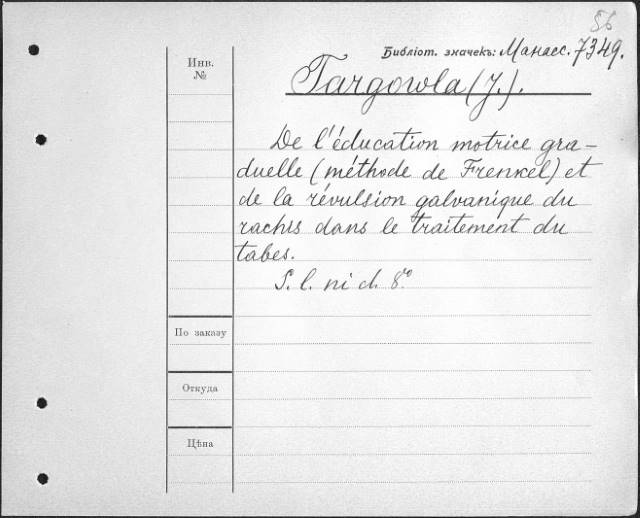 56
Библіот. значекъ: Манасс. 7349.
Инв.
№
Targowla (J.).
De l'éducation motrice gra-
duelle (méthode de Frenkel) et
de la révulsion galvanique du
rachis dans le traitement du
tabes.
S. l. ni d. 8º
По заказу
Откуда
Цѣна